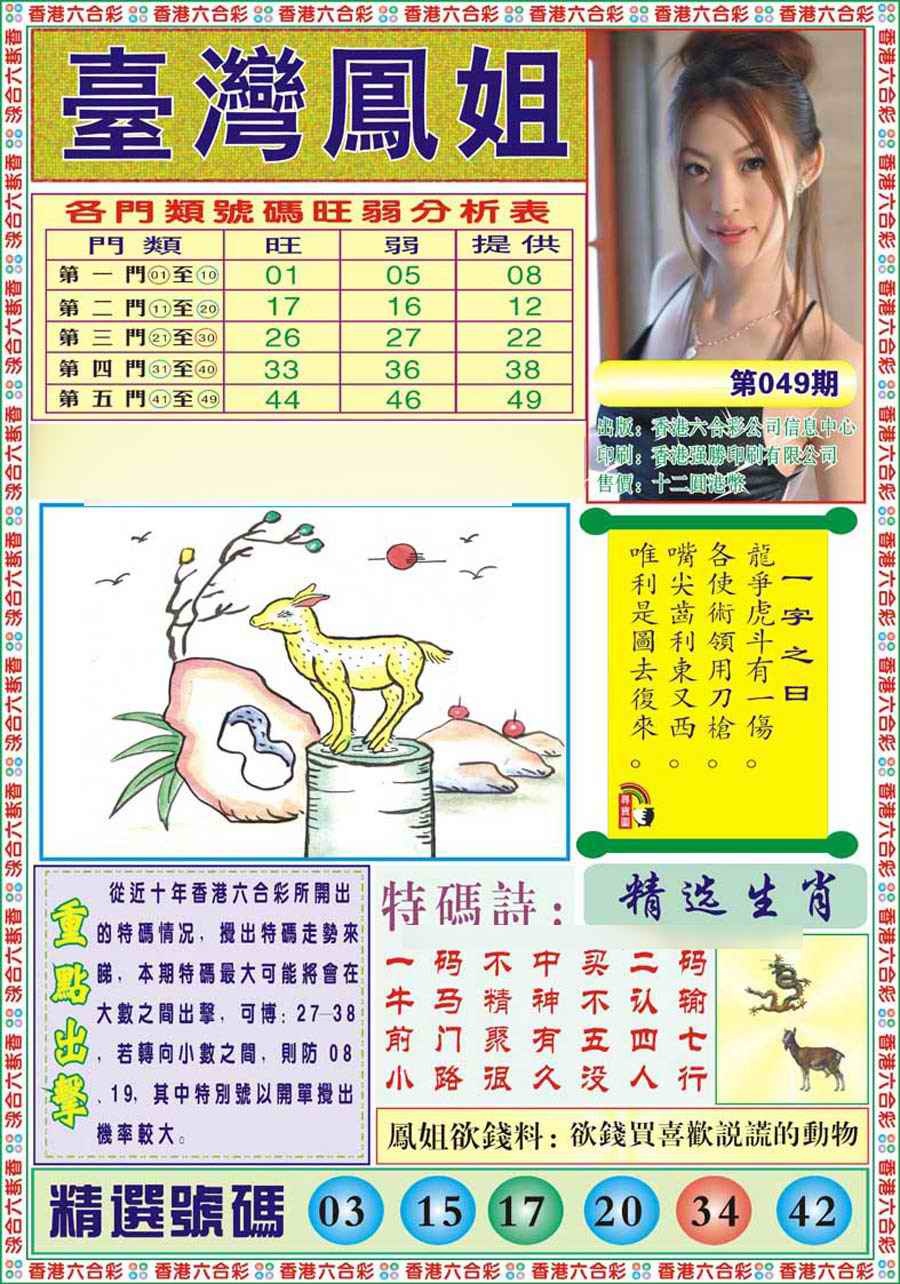 香港六合彩 香港六合彩 香港六合彩 香港六合彩 香港六合彩 香港六合彩 香港六合彩
臺灣鳳姐
各門類號碼旺弱分析表
門類 旺 弱 提供
第一門01至10 01 05 08
第二門11至20 17 16 12
第三門21至30 26 27 22
第四門31至40 33 36 38
第五門41至49 44 46 49
第049期
出版：香港六合彩公司信息中心
印刷：香港强勝印刷有限公司
售價：十二圓港幣
一字之曰
龍爭虎斗有一傷。
各使術領用刀槍。
嘴尖齒利東又西。
唯利是圖去復來。
尋寶圖
重點出擊
從近十年香港六合彩所開出
的特碼情况，攪出特碼走勢來
睇，本期特碼最大可能將會在
大數之間出擊，可博：27—38
，若轉向小數之間，則防 08
、19，其中特別號以開單攪出
機率較大。
特碼詩：
一码不中买二码
牛马精神不认输
前门聚有五四七
小路很久没人行
精选生肖
鳳姐欲錢料：欲錢買喜歡説謊的動物
精選號碼 03 15 17 20 34 42
香港六合彩 香港六合彩 香港六合彩 香港六合彩 香港六合彩 香港六合彩 香港六合彩